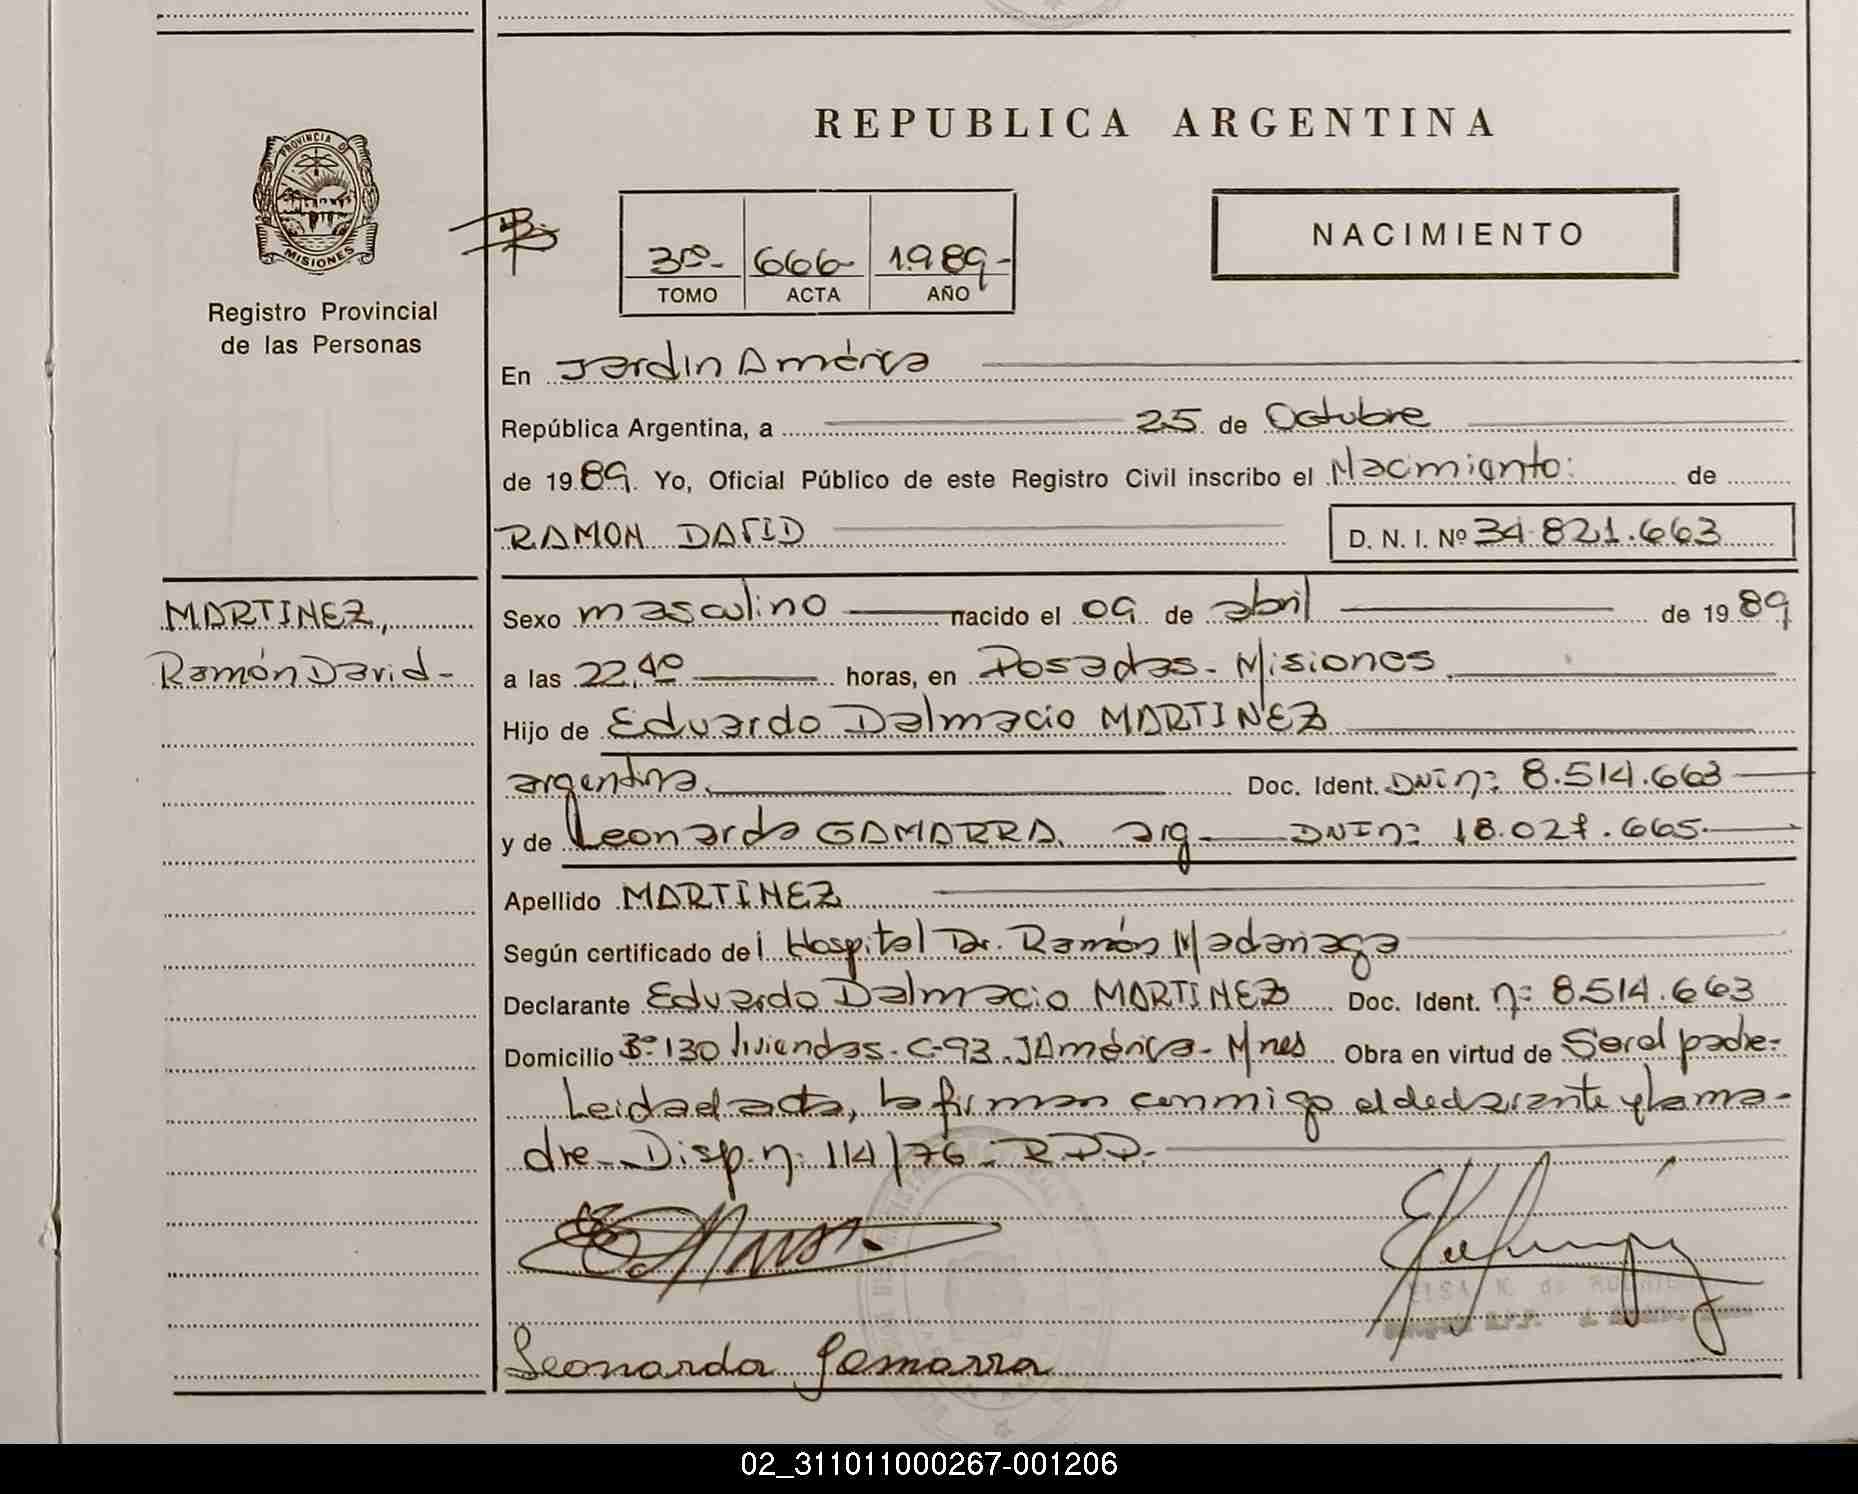 PROVINCIA DE
MISIONES
Registro Provincial
de las Personas
REPUBLICA ARGENTINA
NACIMIENTO
3ro- 666- 1989-
TOMO ACTA AÑO
En Jardin América
República Argentina, a 25 de Octubre
de 1989. Yo, Oficial Público de este Registro Civil inscribo el Nacimiento: de
RAMON DAVID D. N. I. Nº 34.821.663
MARTINEZ,
Ramón David-
Sexo masculino nacido el 09 de abril de 1989
a las 22,40 horas, en Posadas - Misiones
Hijo de Eduardo Dalmacio MARTINEZ
argentina. Doc. Ident. DNI nº 8.514.663
y de Leonarda GAMARRA. arg DNI nº 18.027.665
Apellido MARTINEZ
Según certificado del Hospital Dr. Ramón Madariaga
Declarante Eduardo Dalmacio MARTINEZ Doc. Ident. nº 8.514.663
Domicilio Bº 130 viviendas - C-93. J América - Mnes Obra en virtud de Ser el padre-
Leida el acta, la firman conmigo el declarante y la ma-
dre - Disp. nº 114/76 - RPP.-
Leonarda Gamarra
02_311011000267-001206